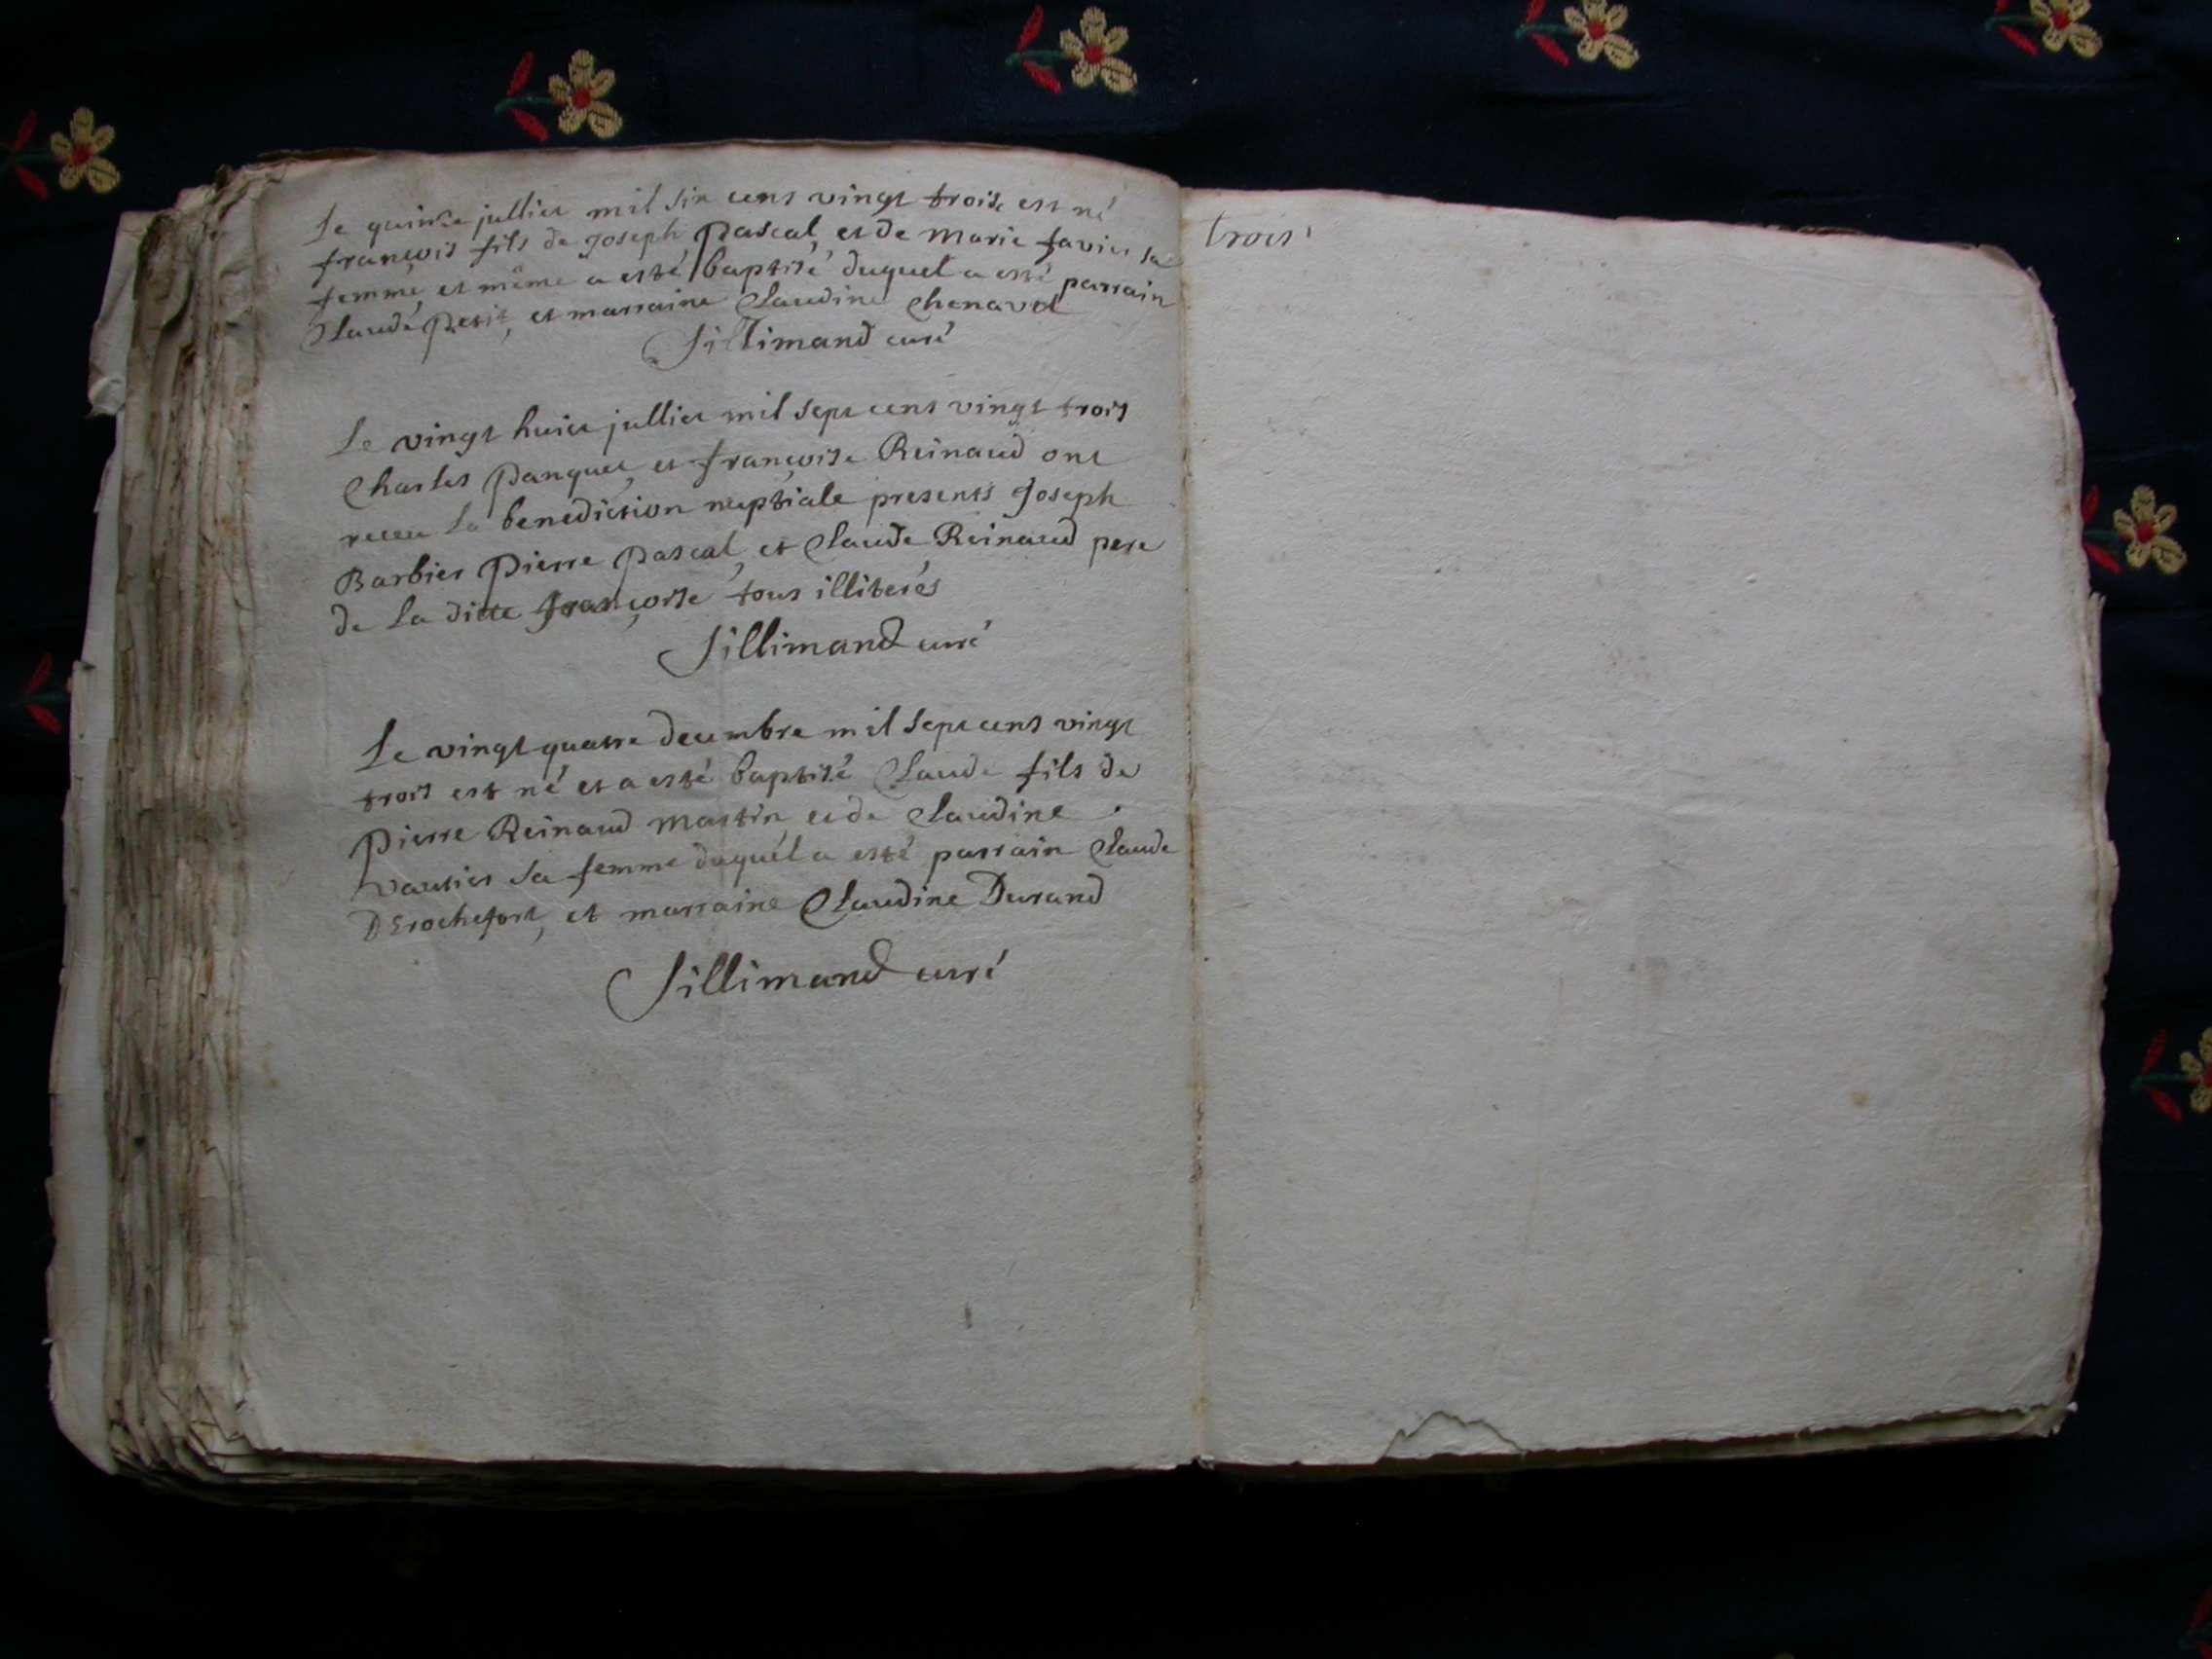 Le quinze jullier mil six cens vingt trois est né
françois fils de Joseph Pascal, et de Marie favier sa
femme, et même a esté baptisé duquel a esté parrain
Claude Petit, et marraine Claudine Chenavel
Sillimand curé
Le vingt huict jullier mil sept cens vingt trois
Charles Panquet, et françoise Reinaud ont
receu la benediction nuptiale presents Joseph
Barbier Pierre Pascal, et Claude Reinaud pere
de la ditte françoise tous illiterés
Sillimand curé
Le vingt quatre decembre mil sept cens vingt
trois est né et a esté baptisé Claude fils de
Pierre Reinaud Martin, et de Claudine
vautier sa femme duquel a esté parrain Claude
DErochefort, et marraine Claudine Durand
Sillimand curé
trois